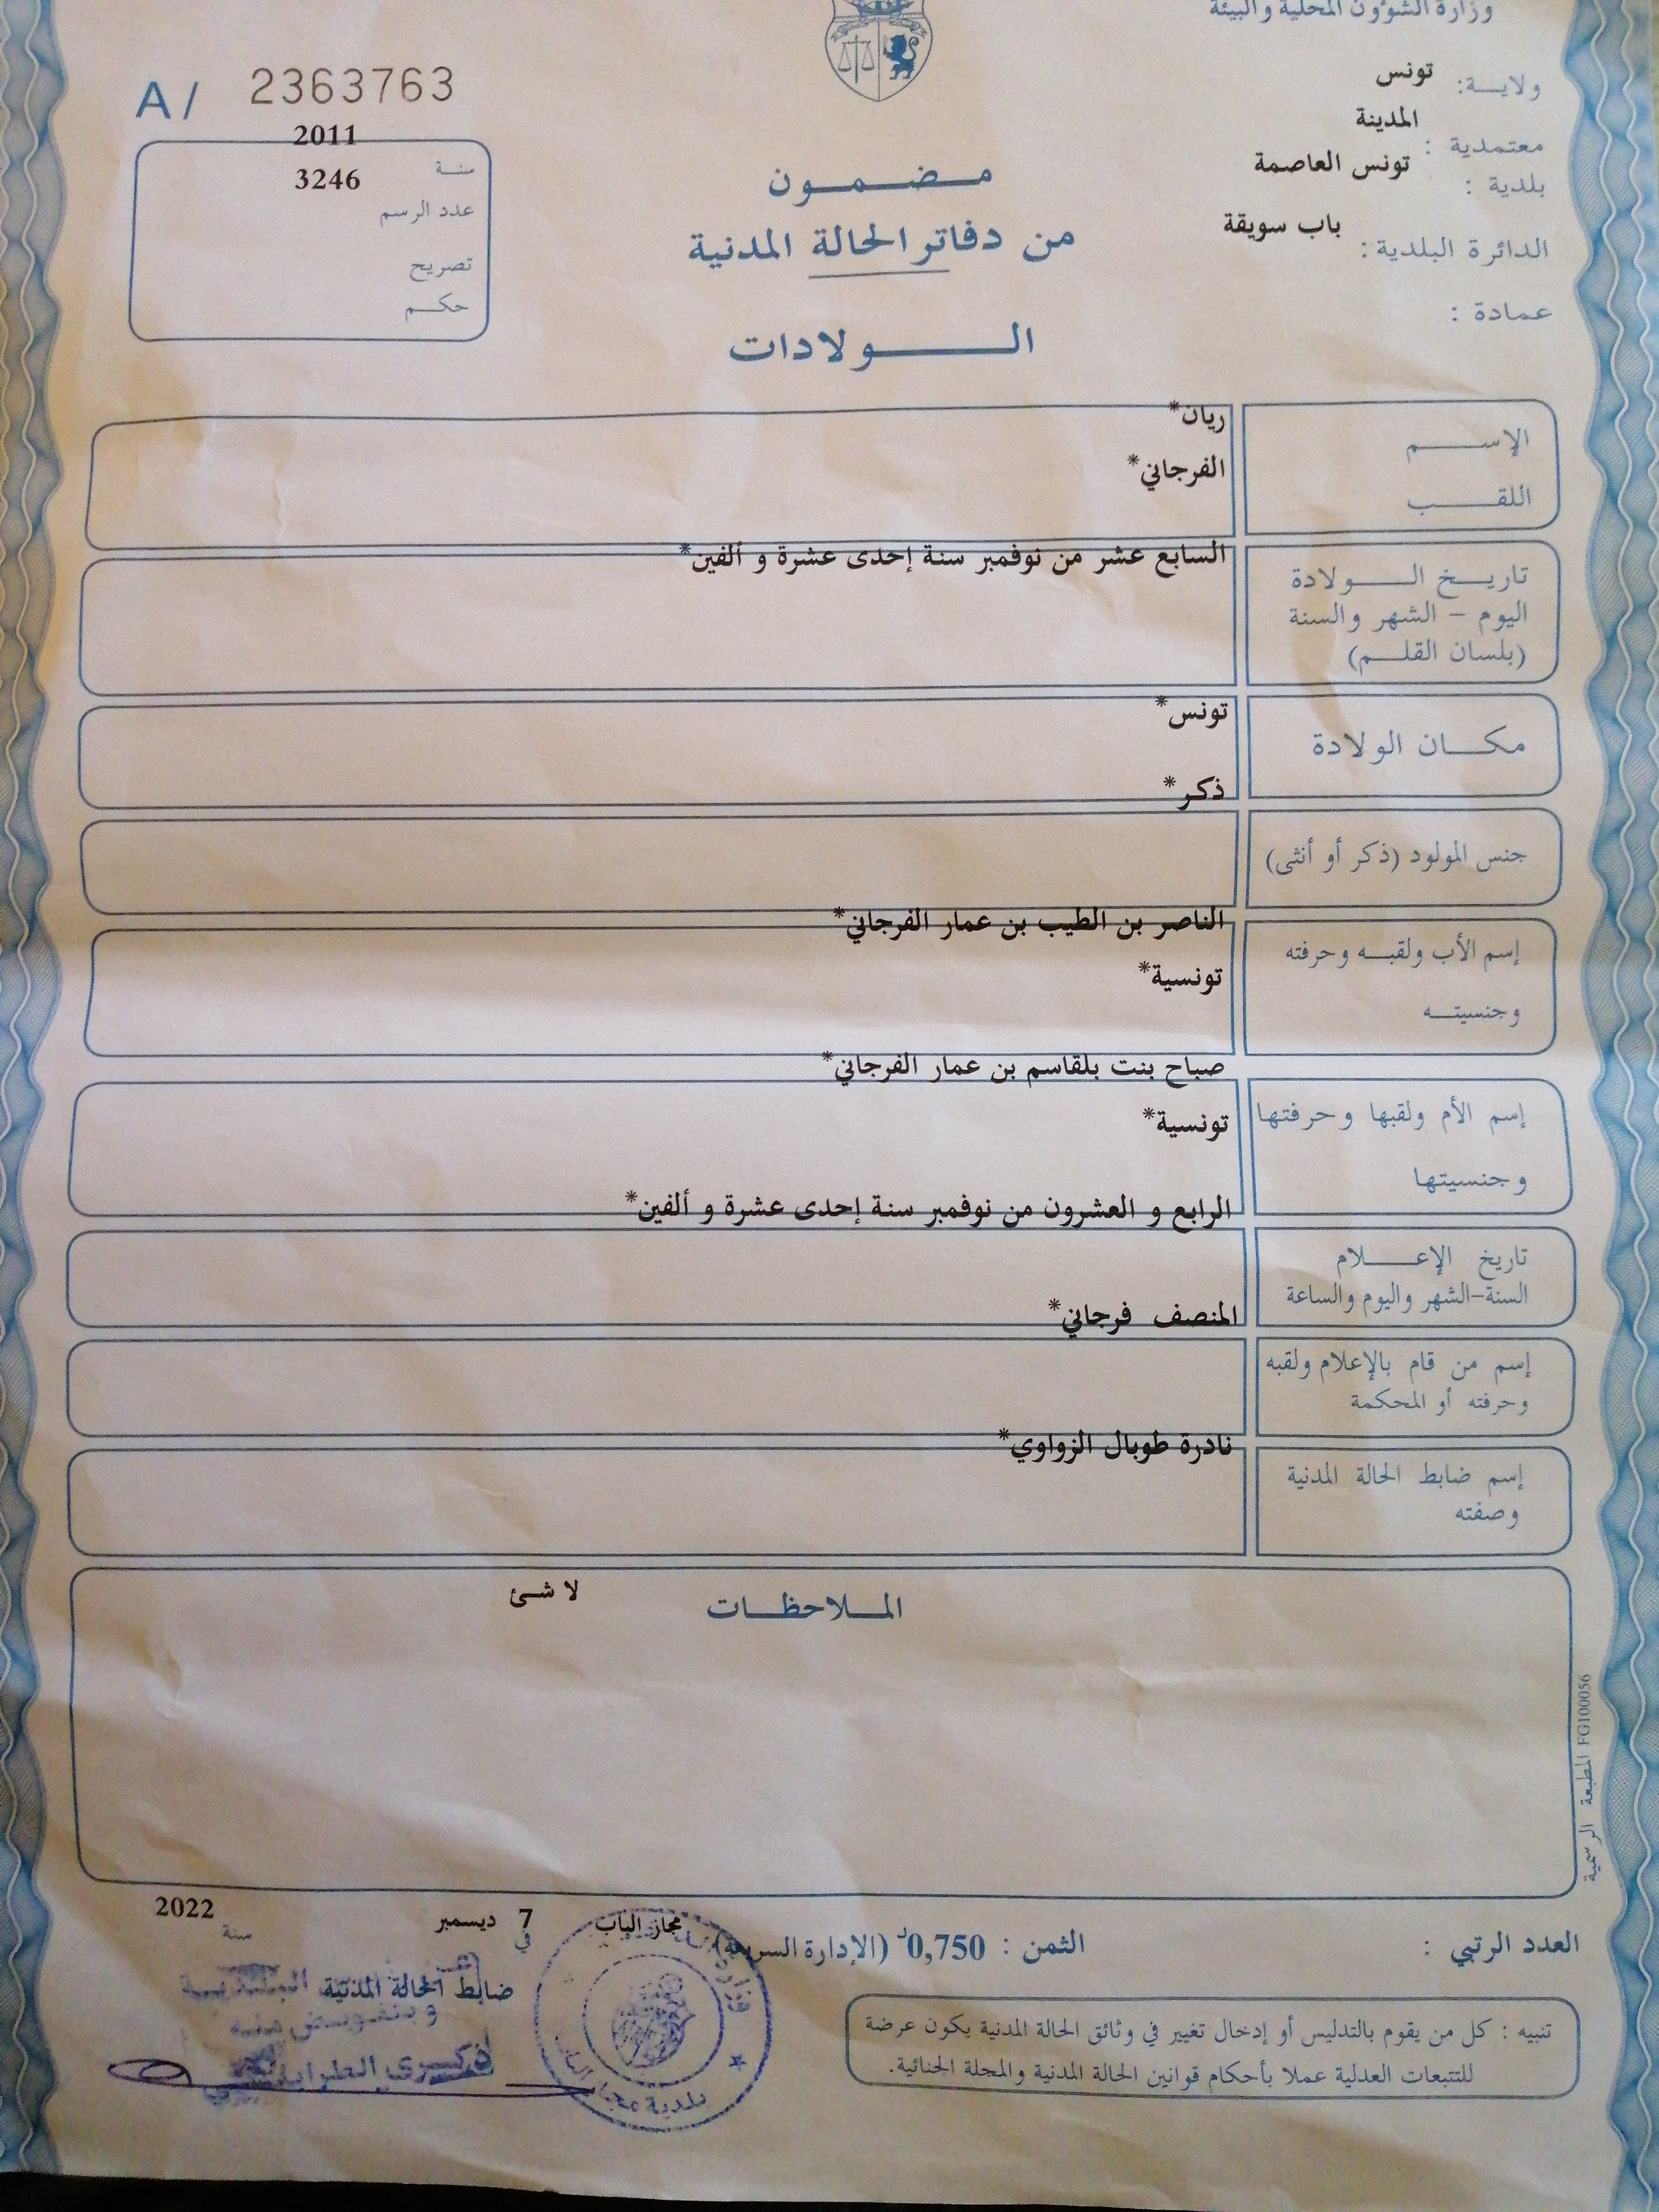 وزارة الشؤون المحلية والبيئة
ولاية: تونس
معتمدية : المدينة
بلدية : تونس العاصمة
الدائرة البلدية: باب سويقة
عمادة :
A/ 2363763
سنة 2011
عدد الرسم 3246
تصريح
حكم
مضمون
من دفاتر الحالة المدنية
الولادات
الإسم ريان*
اللقب الفرجاني*
تاريخ الولادة السابع عشر من نوفمبر سنة إحدى عشرة و ألفين*
اليوم - الشهر والسنة
(بلسان القلم)
مكان الولادة تونس*
جنس المولود (ذكر أو أنثى) ذكر*
إسم الأب ولقبه وحرفته الناصر بن الطيب بن عمار الفرجاني*
وجنسيته تونسية*
إسم الأم ولقبها وحرفتها صباح بنت بلقاسم بن عمار الفرجاني*
وجنسيتها تونسية*
تاريخ الإعلام الرابع و العشرون من نوفمبر سنة إحدى عشرة و ألفين*
السنة-الشهر واليوم والساعة
إسم من قام بالإعلام ولقبه المنصف فرجاني*
وحرفته أو المحكمة
إسم ضابط الحالة المدنية نادرة طوبال الزواوي*
وصفته
الملاحظات لا شئ
المطبعة الرسمية FG100056
العدد الرتبي :
الثمن : 0,750د (الإدارة السريعة)
مجاز الباب في 7 ديسمبر سنة 2022
ضابط الحالة المدنية
وبتفويض منه
بلدية مجاز الباب
تنبيه : كل من يقوم بالتدليس أو إدخال تغيير في وثائق الحالة المدنية يكون عرضة
للتتبعات العدلية عملا بأحكام قوانين الحالة المدنية والمجلة الجنائية.